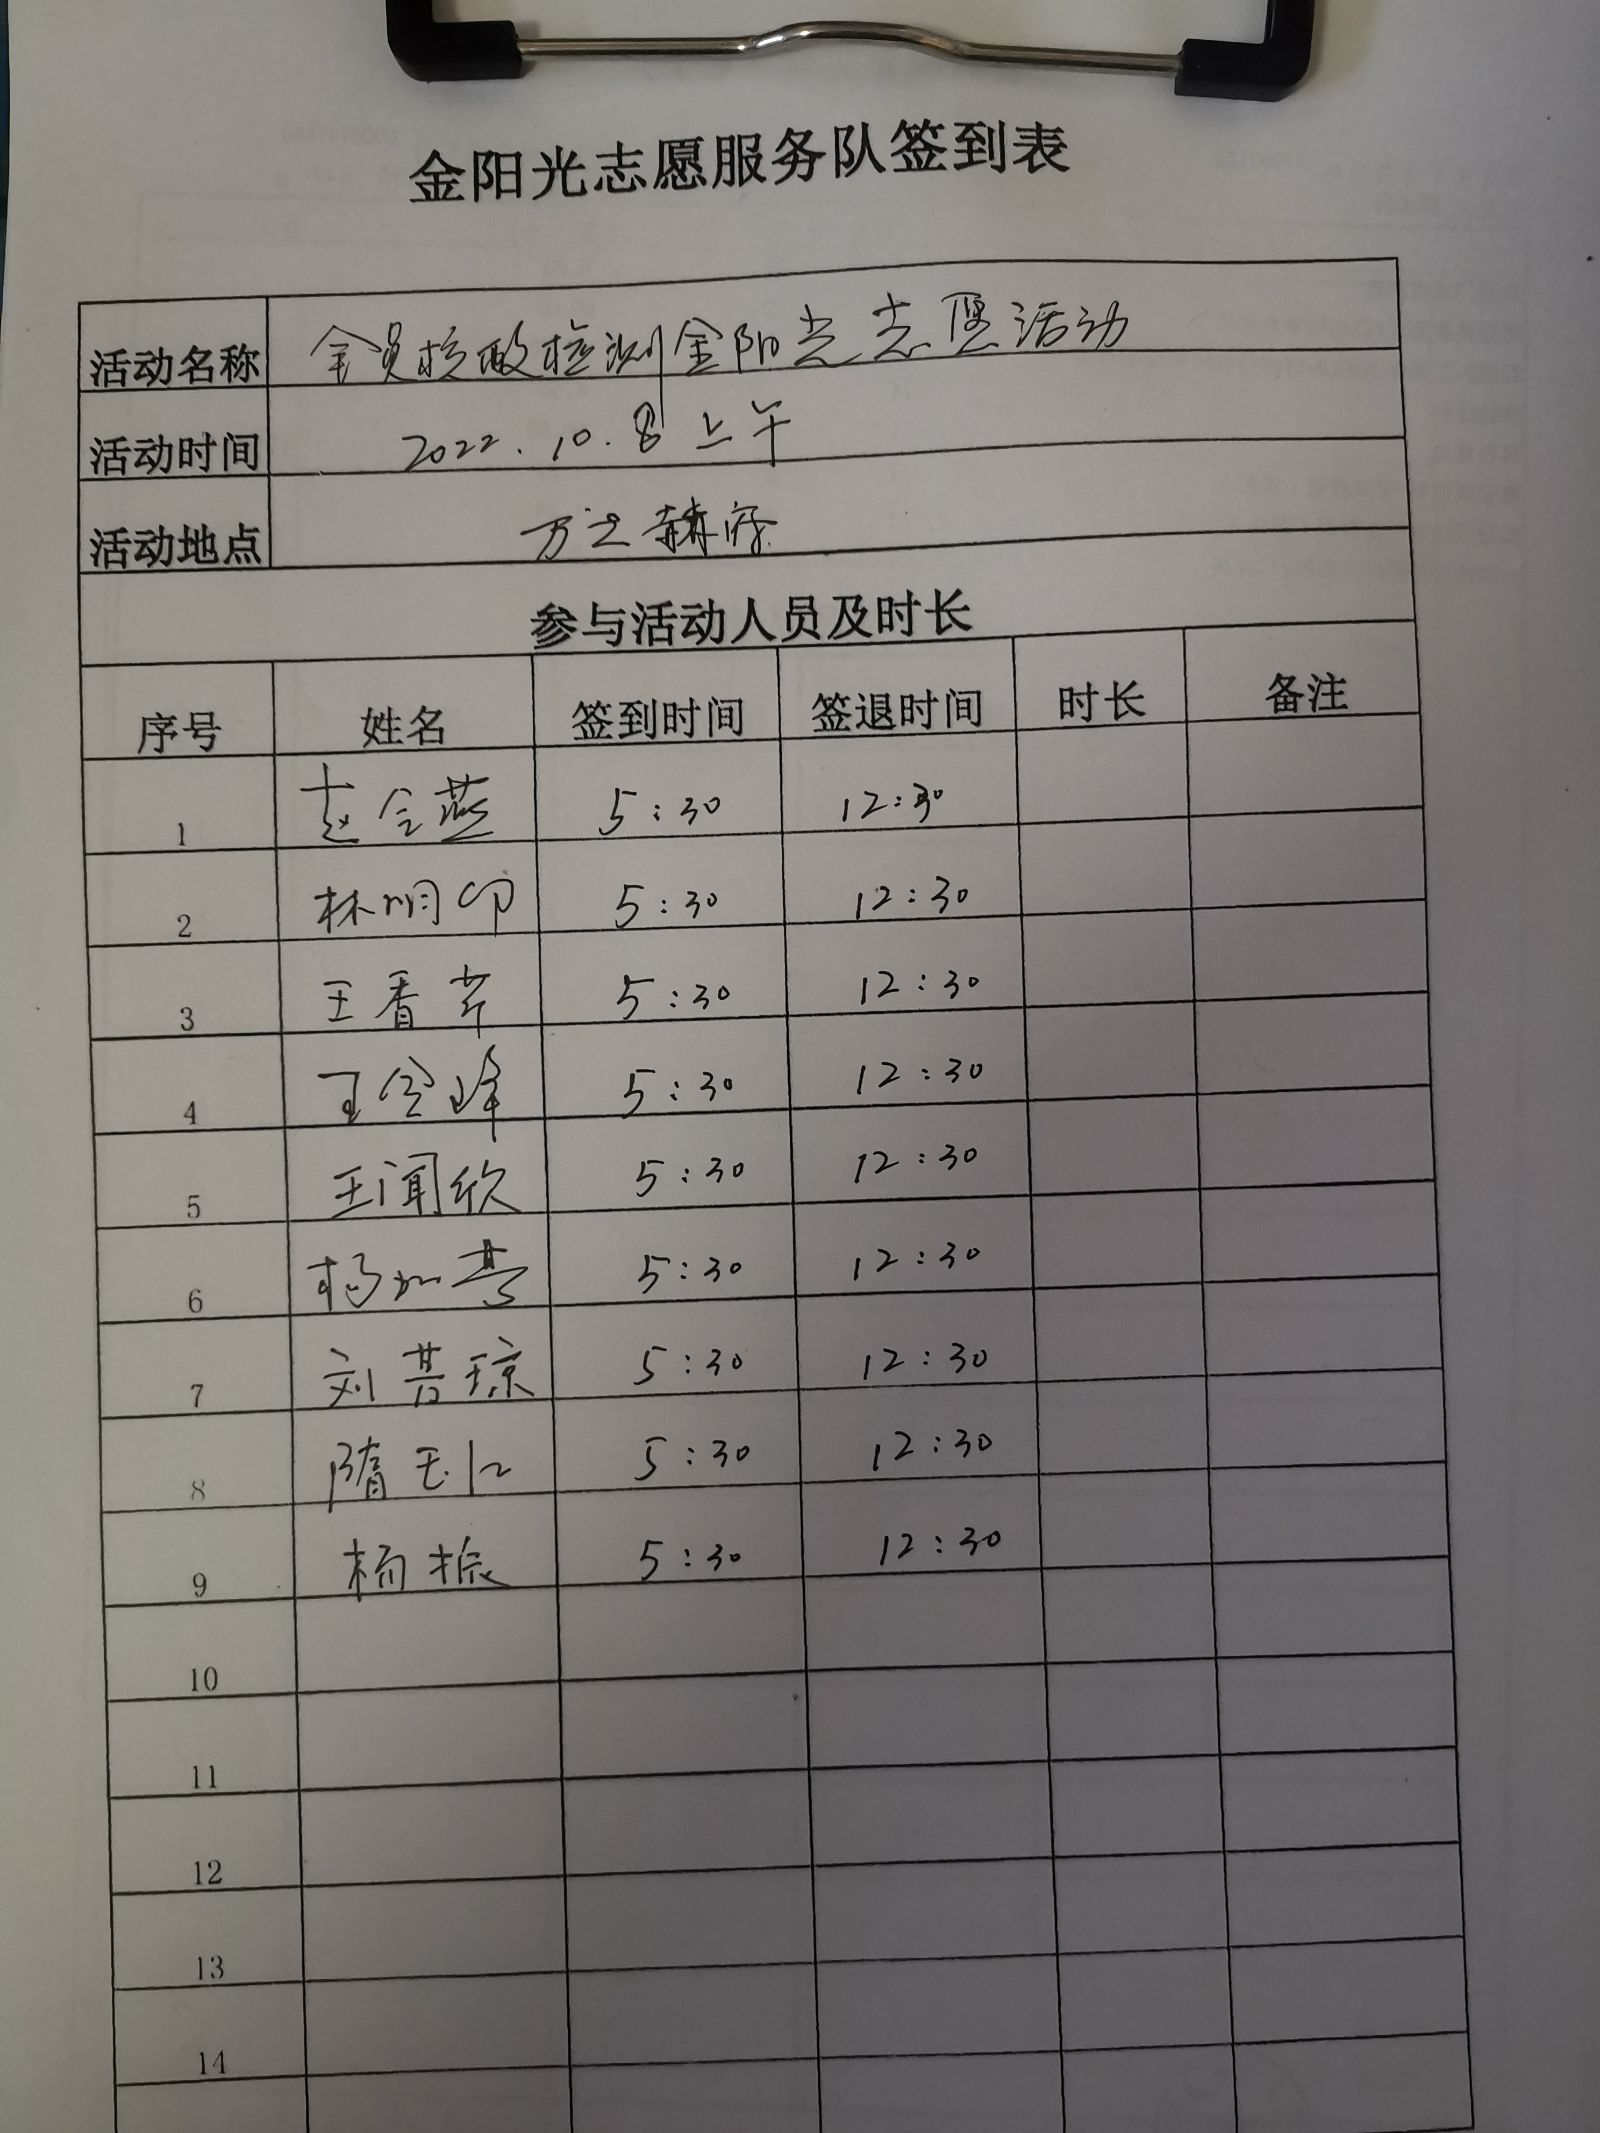 金阳光志愿服务队签到表
活动名称 全员核酸检测金阳光志愿活动
活动时间 2022.10.8上午
活动地点 万之赫府
参与活动人员及时长
序号 姓名 签到时间 签退时间 时长 备注
1 赵会燕 5:30 12:30
2 林明印 5:30 12:30
3 王香芹 5:30 12:30
4 王金峰 5:30 12:30
5 王闻欣 5:30 12:30
6 杨 5:30 12:30
7 刘琼 5:30 12:30
8 隋玉仁 5:30 12:30
9 杨振 5:30 12:30
10
11
12
13
14